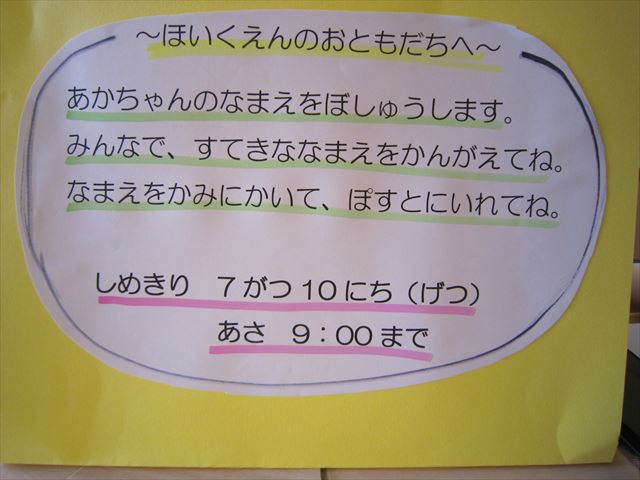 ～ほいくえんのおともだちへ～
あかちゃんのなまえをぼしゅうします。
みんなで、すてきななまえをかんがえてね。
なまえをかみにかいて、ぽすとにいれてね。
しめきり　7がつ10にち（げつ）
あさ　9：00まで